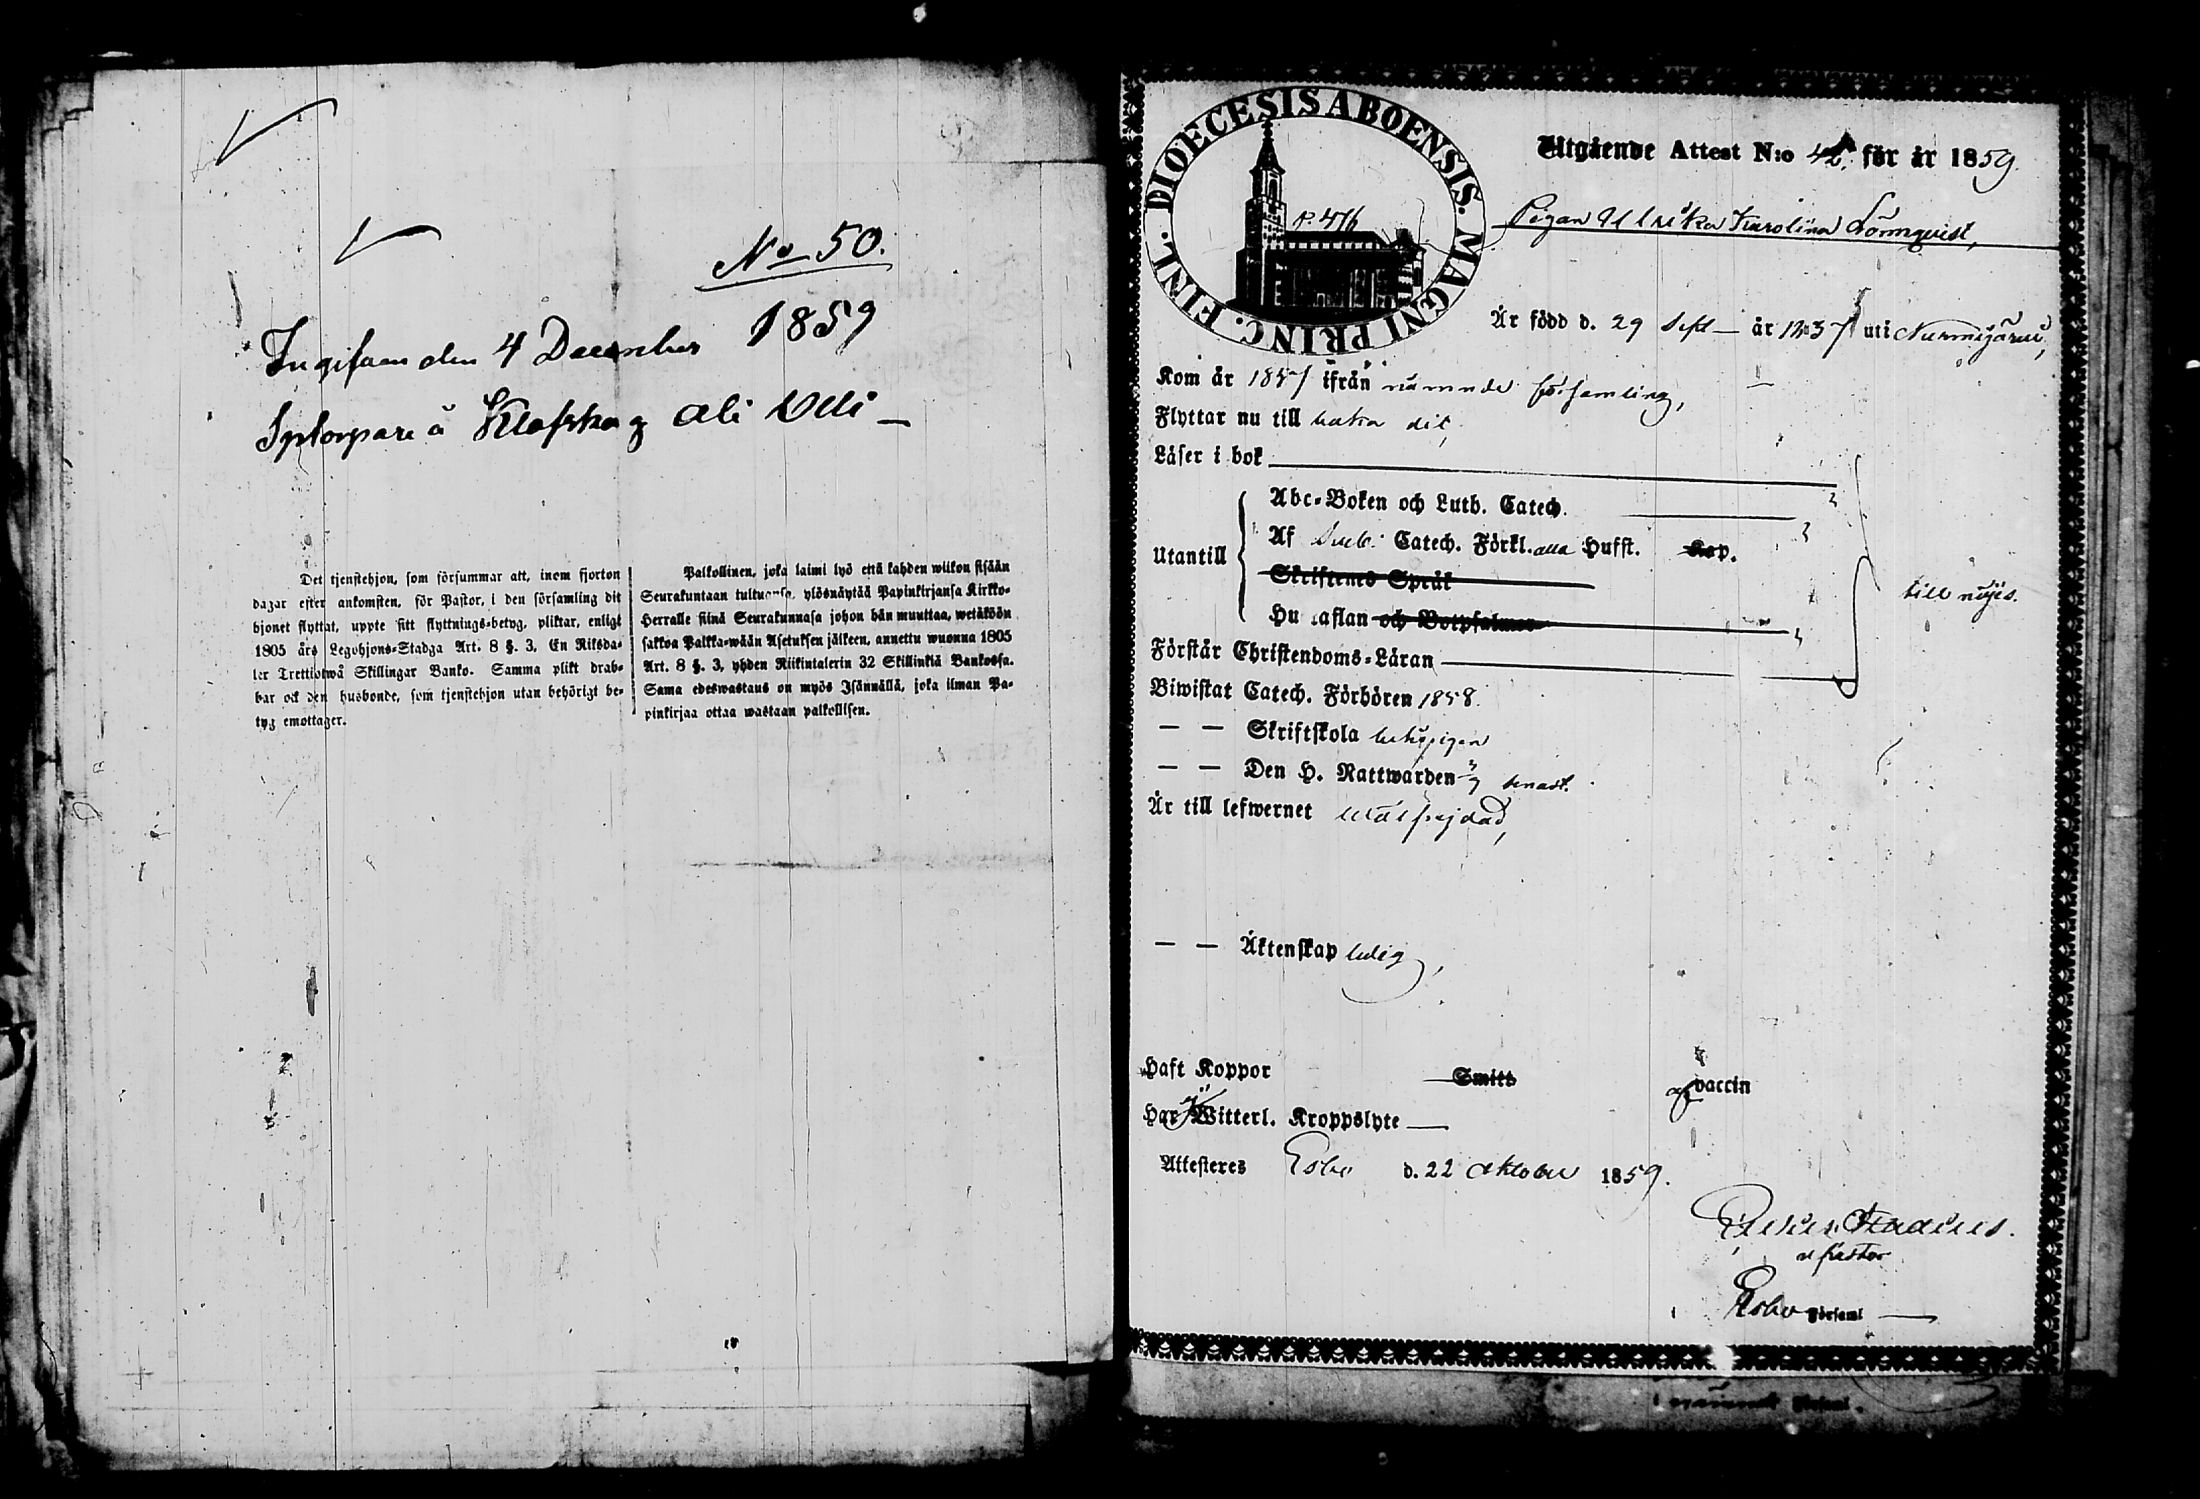 No 50.
Ingifven den 4 December 1859
å Klafskog Ali Ulli
Det tjenstehjon, som försummar att, inom fjorton
dagar efter ankomsten, för Pastor, i den församling dit
hjonet flyttat, uppte sitt flyttnings-betyg, pliktar, enligt
1805 års Legohjons-Stadga Art. 8 §. 3, En Riksda-
ler Trettiotwå Skillingar Banko. Samma plikt drab-
bar ock den husbonde, som tjenstehjon utan behörigt be-
tyg emottager.
Palkollinen, joka laimi lyö että kahden wiikon sisään
Seurakuntaan tultuansa, ylösnäytää Papinkirjansa Kirkko-
Herralle siinä Seurakunnasa johon hän muuttaa, wetäköön
sakkoa Palkka-wään Asetuksen jälkeen, annettu wuonna 1805
Art. 8 §. 3, yhden Riikintalerin 32 Skillinkiä Bankossa.
Sama edeswastaus on myös Isännällä, joka ilman Pa-
pinkirjaa ottaa wastaan palkollisen.
DIOECESIS ABOENSIS. MAGNI PRINC. FINL.
P. 476
Utgående Attest N:o 42. för år 1859.
Pigan Ulrika Karolina Lönnqvist,
Är född d. 29 Sept år 1837 uti Nurmijärvi,
Kom år 1857 ifrån nämnde församling,
Flyttar nu till baka dit,
Läser i bok
Utantill
Abc-Boken och Luth. Catech.
Af Sveb. Catech. Förkl. alla Hufst. Kap.
Skriftenes Språk
Hustaflan och Botpsalmer
till nöjes.
Förstår Christendoms-Läran
Biwistat Catech. Förhören 1858.
— — Skriftskola behörigen
— — Den H. Nattwarden senast.
Är till lefwernet wälfrejdad,
— — Äktenskap ledig,
Haft Koppor Smitt af vaccin
Har ej Witterl. Kroppslyte —
Attesteres Esbo d. 22 oktober 1859.
v pastor
i Esbo Församl —
i nämnde Församl.